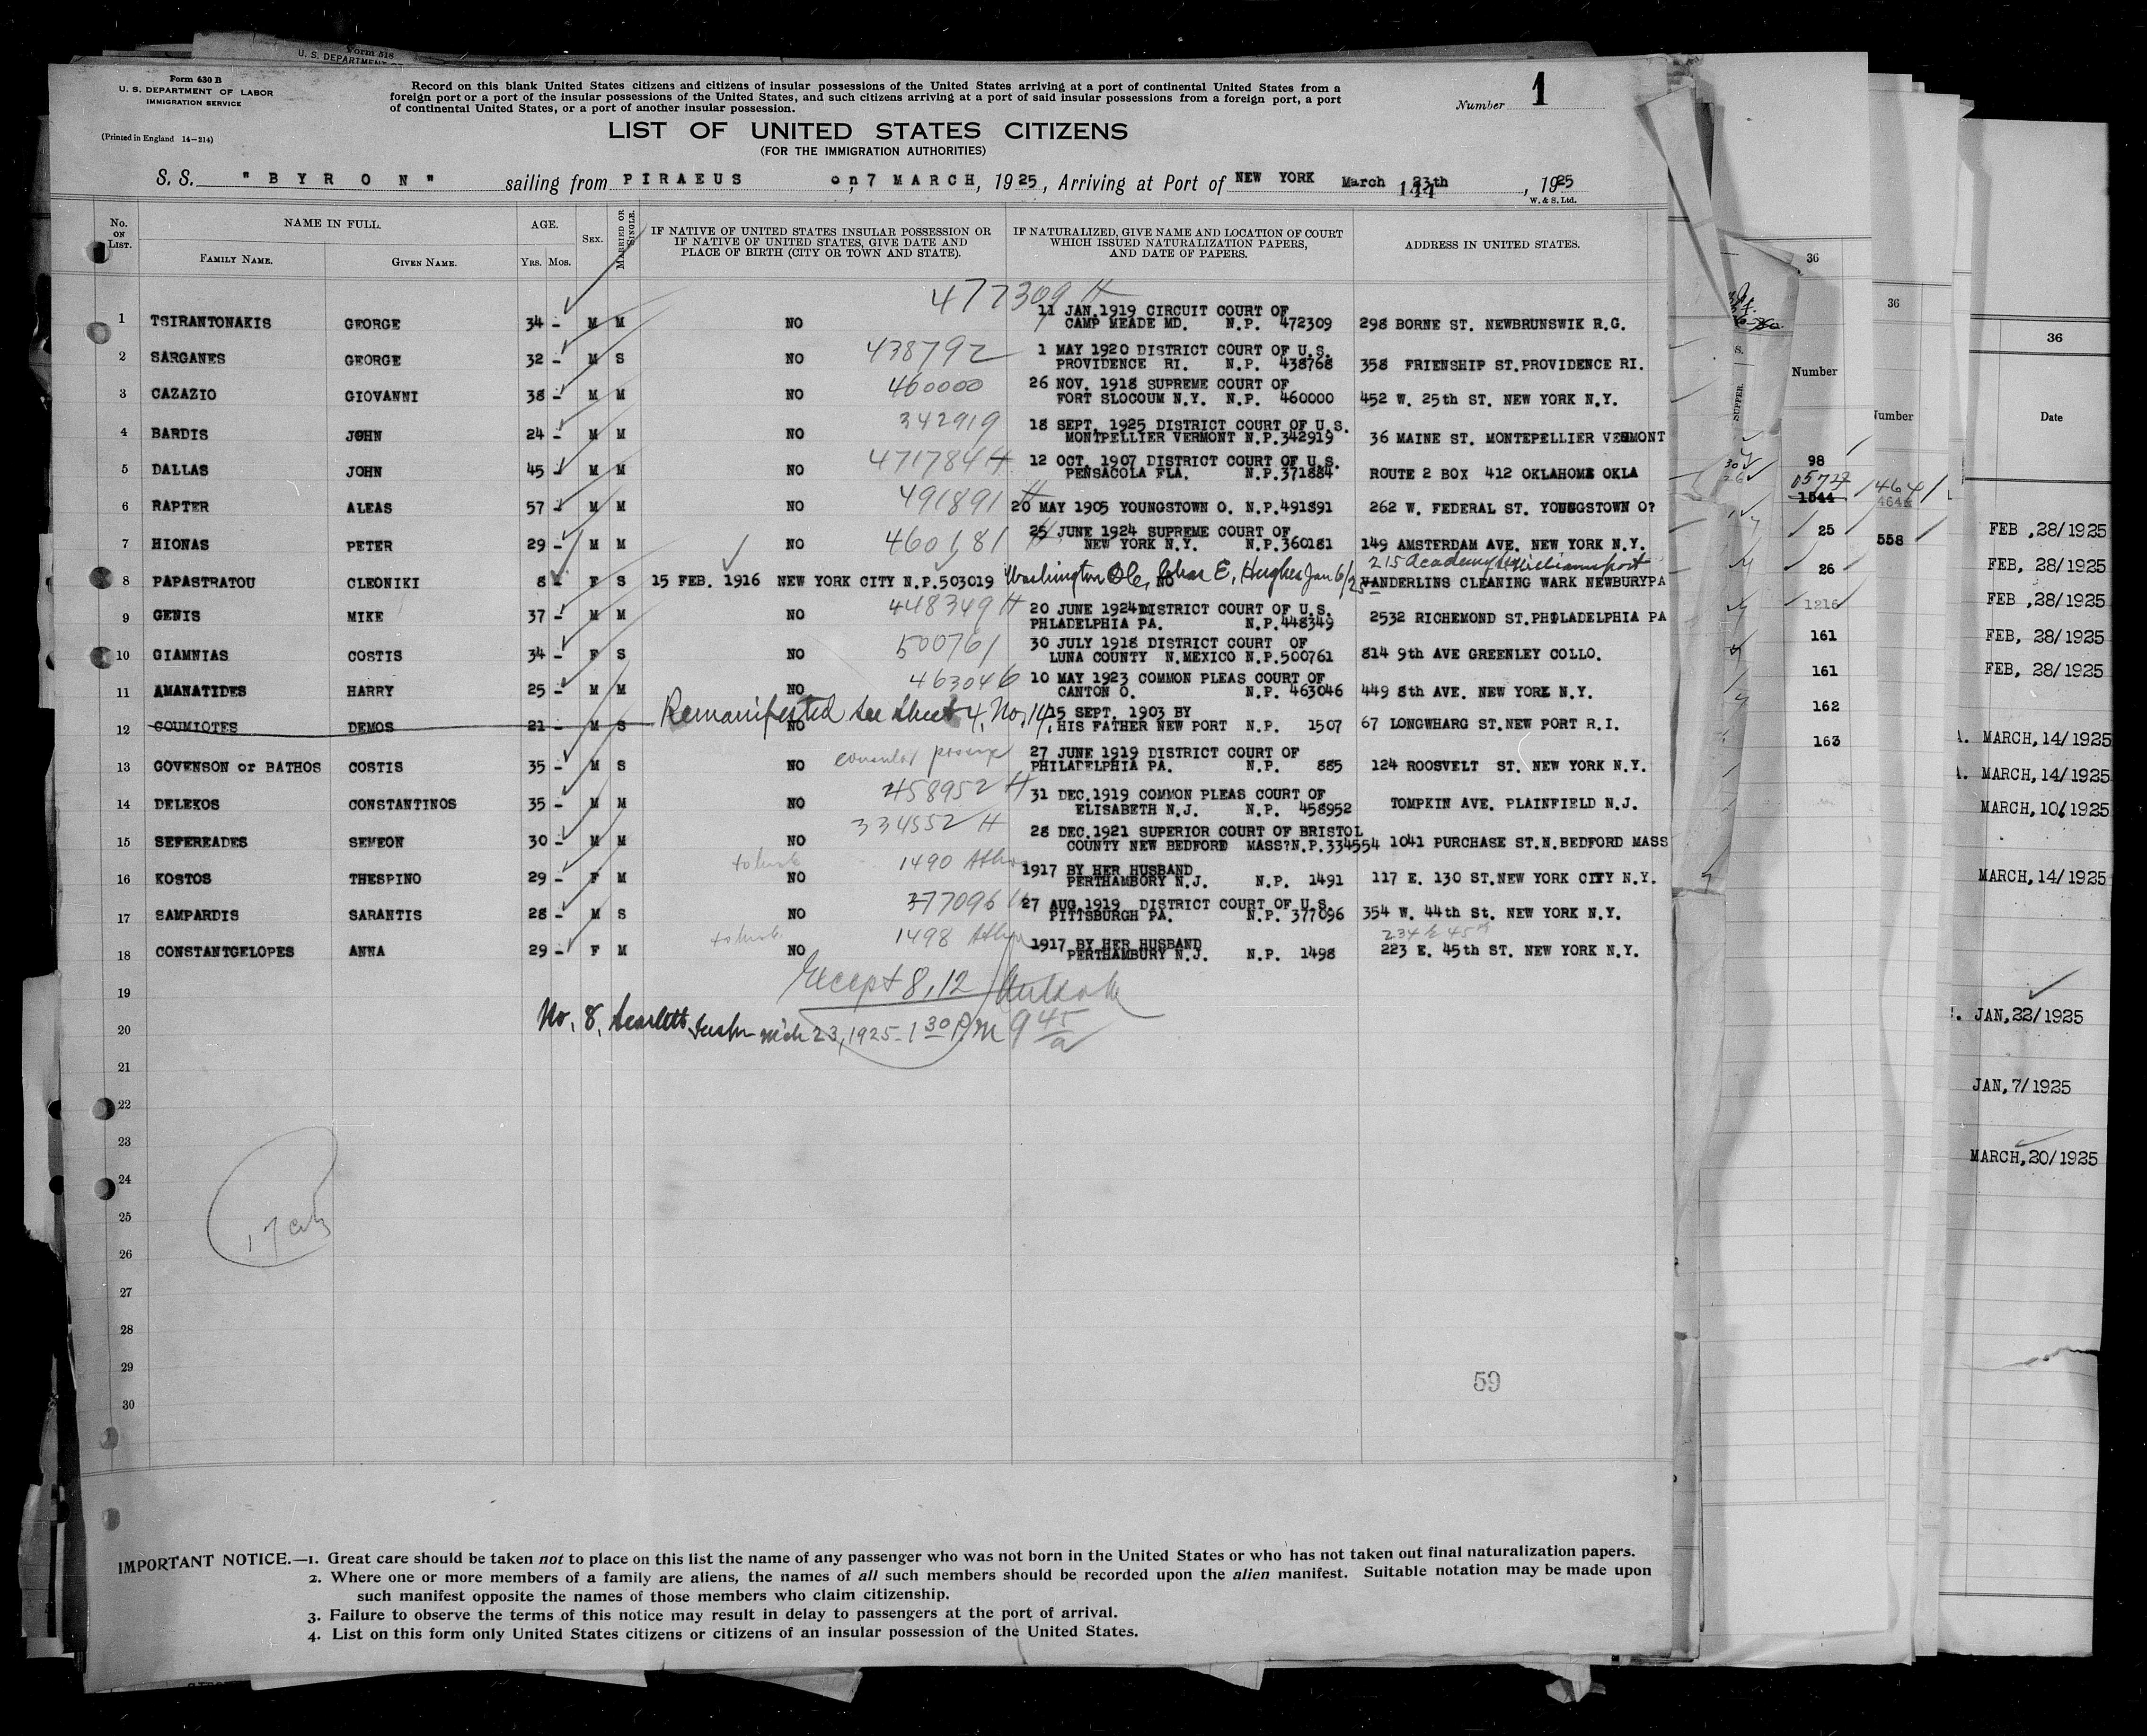 Form 518
U. S. DEPARTMENT
Form 630 B
U. S. DEPARTMENT OF LABOR
IMMIGRATION SERVICE
(Printed in England 14—214)
Record on this blank United States citizens and citizens of insular possessions of the United States arriving at a port of continental United States from a
foreign port or a port of the insular possessions of the United States, and such citizens arriving at a port of said insular possessions from a foreign port, a port
of continental United States, or a port of another insular possession.
Number 1
LIST OF UNITED STATES CITIZENS
(FOR THE IMMIGRATION AUTHORITIES)
S. S. "BYRON" sailing from PIRAEUS on, 7 MARCH, 1925, Arriving at Port of NEW YORK March 23th, 1925
144
W. & S. Ltd.
No. ON LIST. NAME IN FULL. FAMILY NAME. GIVEN NAME. AGE. YRS. MOS. SEX. MARRIED OR SINGLE. IF NATIVE OF UNITED STATES INSULAR POSSESSION OR IF NATIVE OF UNITED STATES, GIVE DATE AND PLACE OF BIRTH (CITY OR TOWN AND STATE). IF NATURALIZED, GIVE NAME AND LOCATION OF COURT WHICH ISSUED NATURALIZATION PAPERS, AND DATE OF PAPERS. ADDRESS IN UNITED STATES.
477309 H
11 JAN.1919 CIRCUIT COURT OF
1 TSIRANTONAKIS GEORGE 34 - M M NO CAMP MEADE MD. N.P. 472309 298 BORNE ST. NEWBRUNSWIK R.G.
438792 1 MAY 1920 DISTRICT COURT OF U.S.
2 SARGANES GEORGE 32 - M S NO PROVIDENCE RI. N.P. 438768 358 FRIENSHIP ST.PROVIDENCE RI.
460000 26 NOV. 1918 SUPREME COURT OF
3 CAZAZIO GIOVANNI 38 - M M NO FORT SLOCOUM N.Y. N.P. 460000 452 W. 25th ST. NEW YORK N.Y.
342919 18 SEPT. 1925 DISTRICT COURT OF U.S.
4 BARDIS JOHN 24 - M M NO MONTPELLIER VERMONT N.P.342919 36 MAINE ST. MONTEPELLIER VERMONT
471784 H 12 OCT. 1907 DISTRICT COURT OF U.S.
5 DALLAS JOHN 45 - M M NO PENSACOLA FLA. N.P.371884 ROUTE 2 BOX 412 OKLAHOME OKLA
491891 H
6 RAPTER ALEAS 57 - M M NO 20 MAY 1905 YOUNGSTOWN O. N.P.491891 262 W. FEDERAL ST. YOUNGSTOWN O?
25 JUNE 1924 SUPREME COURT OF
7 HIONAS PETER 29 - M M NO 460181 NEW YORK N.Y. N.P.360181 149 AMSTERDAM AVE. NEW YORK N.Y.
215 Academy St Williamsport
8 PAPASTRATOU CLEONIKI 8 - F S 15 FEB. 1916 NEW YORK CITY N.P.503019 Washington DC, Chas E, Hughes Jan 6/25 NO VANDERLINS CLEANING WARK NEWBURYPA
448349 H 20 JUNE 1924 DISTRICT COURT OF U.S.
9 GENIS MIKE 37 - M M NO PHLADELPHIA PA. N.P.448349 2532 RICHEMOND ST.PHOLADELPHIA PA
500761 30 JULY 1918 DISTRICT COURT OF
10 GIAMNIAS COSTIS 34 - F S NO LUNA COUNTY N.MEXICO N.P.500761 814 9th AVE GREENLEY COLLO.
463046 10 MAY 1923 COMMON PLEAS COURT OF
11 AMANATIDES HARRY 25 - M M NO CANTON O. N.P. 463046 449 8th AVE. NEW YORK N.Y.
Remanifested See Sheet 4, No, 14, 15 SEPT. 1903 BY
12 COUMIOTES DEMOS 21 - M S NO HIS FATHER NEW PORT N.P. 1507 67 LONGWHARG ST.NEW PORT R.I.
consular 27 JUNE 1919 DISTRICT COURT OF
13 GOVENSON or BATHOS COSTIS 35 - M S NO PHILADELPHIA PA. N.P. 885 124 ROOSVELT ST. NEW YORK N.Y.
458952 H 31 DEC.1919 COMMON PLEAS COURT OF
14 DELEKOS CONSTANTINOS 35 - M M NO ELISABETH N.J. N.P. 458952 TOMPKIN AVE. PLAINFIELD N.J.
334552 H 28 DEC.1921 SUPERIOR COURT OF BRISTOL
15 SEFEREADES SEMEON 30 - M M NO COUNTY NEW BEDFORD MASS?N.P.334554 1041 PURCHASE ST.N.BEDFORD MASS
to husb. 1490 Athens 1917 BY HER HUSBAND
16 KOSTOS THESPINO 29 - F M NO PERTHAMBORY N.J. N.P. 1491 117 E. 130 ST.NEW YORK CITY N.Y.
377096 27 AUG.1919 DISTRICT COURT OF U.S.
17 SAMPARDIS SARANTIS 28 - M S NO PITTSBURGH PA. N.P. 377096 354 W. 44th St. NEW YORK N.Y.
to husb. 1498 Athens 1917 BY HER HUSBAND 234 E 45th
18 CONSTANTGELOPES ANNA 29 - F M NO PERTHAMBURY N.J. N.P. 1498 223 E. 45th ST. NEW YORK N.Y.
Except 8, 12
19
No, 8, Scarlett Inspr Mch 23, 1925 - 1 30 P.M 9 45 a
20
21
22
23
24
25
26
27
28
29
30
17
59
IMPORTANT NOTICE.—1. Great care should be taken not to place on this list the name of any passenger who was not born in the United States or who has not taken out final naturalization papers.
2. Where one or more members of a family are aliens, the names of all such members should be recorded upon the alien manifest. Suitable notation may be made upon
such manifest opposite the names of those members who claim citizenship.
3. Failure to observe the terms of this notice may result in delay to passengers at the port of arrival.
4. List on this form only United States citizens or citizens of an insular possession of the United States.
S.
SUPPER.
36
Number
98
0572
1544
25
26
1216
161
161
162
163
36
Number
4641
464
558
36
Date
FEB ,28/1925
FEB, 28/1925
FEB ,28/1925
FEB, 28/1925
FEB, 28/1925
A. MARCH,14/1925
A. MARCH,14/1925
MARCH,10/1925
MARCH,14/1925
JAN,22/1925
JAN,7/1925
MARCH,20/1925